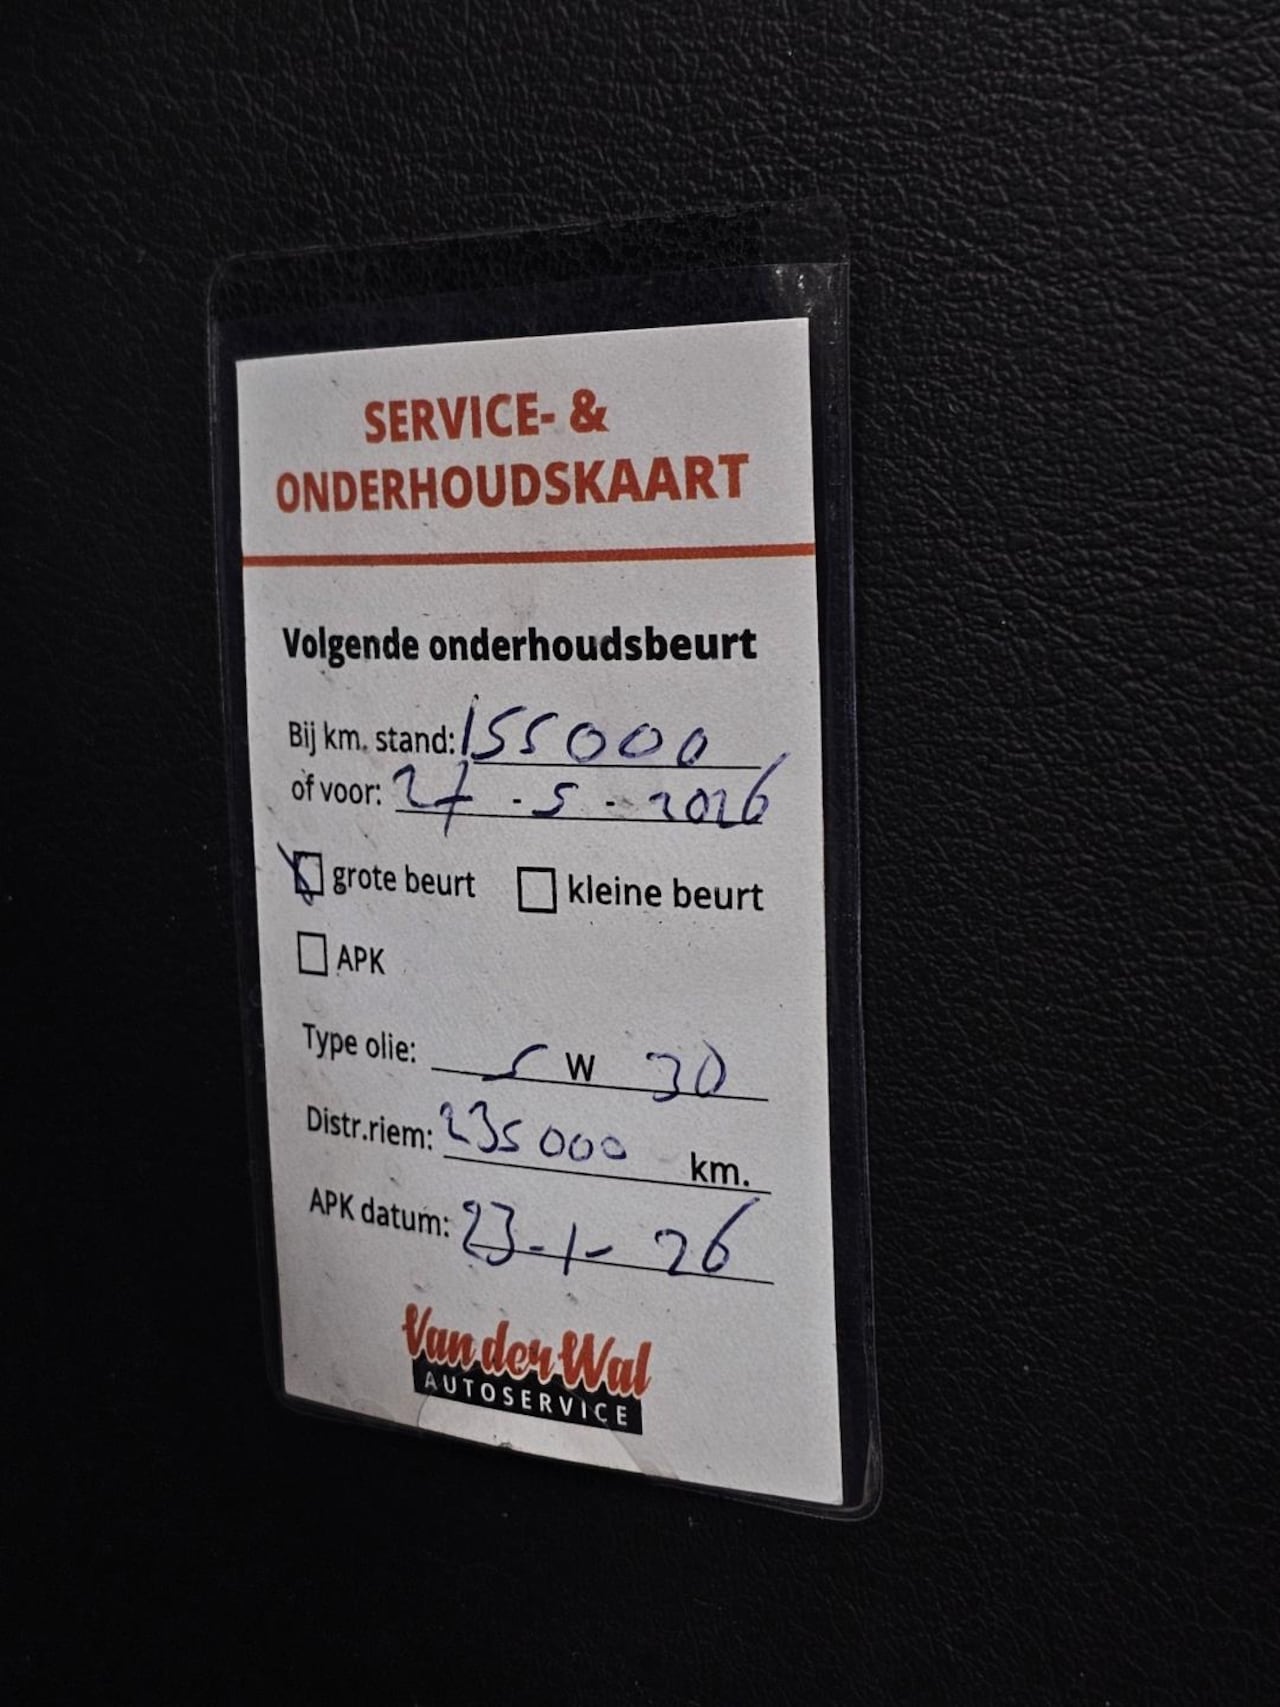 SERVICE- &
ONDERHOUDSKAART
Volgende onderhoudsbeurt
Bij km. stand: 155000
of voor: 27-5-2026
grote beurt kleine beurt
APK
Type olie: 5 W 30
Distr.riem: 235000 km.
APK datum: 23-1-26
Van der Wal
AUTOSERVICE